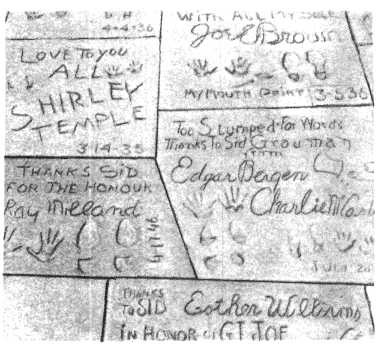 4-4-36
LOVE TO YOU
ALL
SHIRLEY
TEMPLE
3-14-35
WITH ALL MY
Joe E Brown
MY MOUTH PRINT
3-5-36
THANKS SID
FOR THE HONOUR
Ray Milland
Too Slumped For Words
Thanks to Sid Grauman
FROM
Edgar Bergen
Charlie
THANKS
TO SID
Esther Williams
IN HONOR OF GI JOE